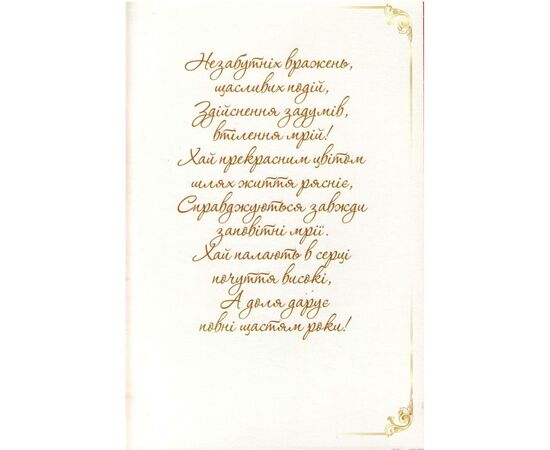 Незабутніх вражень,
щасливих подій,
Здійснення задумів,
втілення мрій!
Хай прекрасним цвітом
шлях життя рясніє,
Справджуються завжди
заповітні мрії.
Хай палають в серці
почуття високі,
А доля дарує
повні щастям роки!